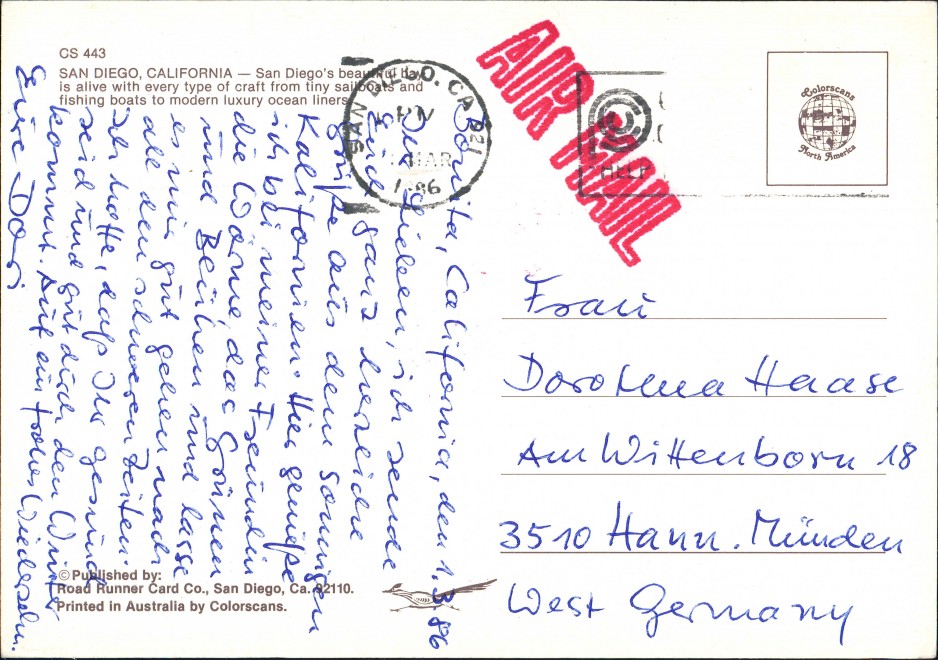 CS 443
SAN DIEGO, CALIFORNIA — San Diego's beautiful bay
is alive with every type of craft from tiny sailboats and
fishing boats to modern luxury ocean liners.
Bonita, California, den 1.3.86
Ihr Lieben, ich sende
Euch ganz herzliche
Grüße aus dem sonnigen
Kalifornien. Hier genieße
ich bei meiner Freundin
die Wärme, das Grünen
und Blühen und lasse
es mir gut gehen nach
all den schweren Zeiten.
Ich hoffe, daß Ihr gesund
seid und gut durch den Winter
kommt. Auf ein frohes Wiedersehn.
Eure Dori
SAN DIEGO, CA 921
PM
MAR
1986
AIR MAIL
HELP
Colorscans
North America
Frau
Dorothea Haase
Am Wittenborn 18
3510 Hann. Münden
West Germany
© Published by:
Road Runner Card Co., San Diego, Ca. 92110.
Printed in Australia by Colorscans.